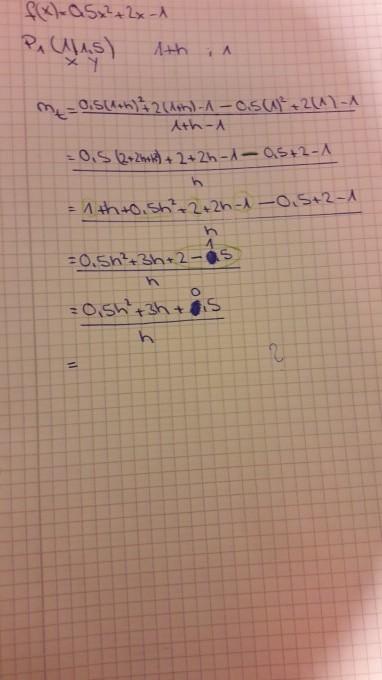 f(x)=0,5x²+2x-1
P₁(1|1,5) 1+h ; 1
x y
mₜ=0,5(1+h)²+2(1+h)-1-0,5(1)²+2(1)-1
1+h-1
=0,5(2+2h+h²)+2+2h-1-0,5+2-1
h
=1+h+0,5h²+2+2h-1-0,5+2-1
h
=0,5h²+3h+2-1,5
h
=0,5h²+3h+0,5
h
=